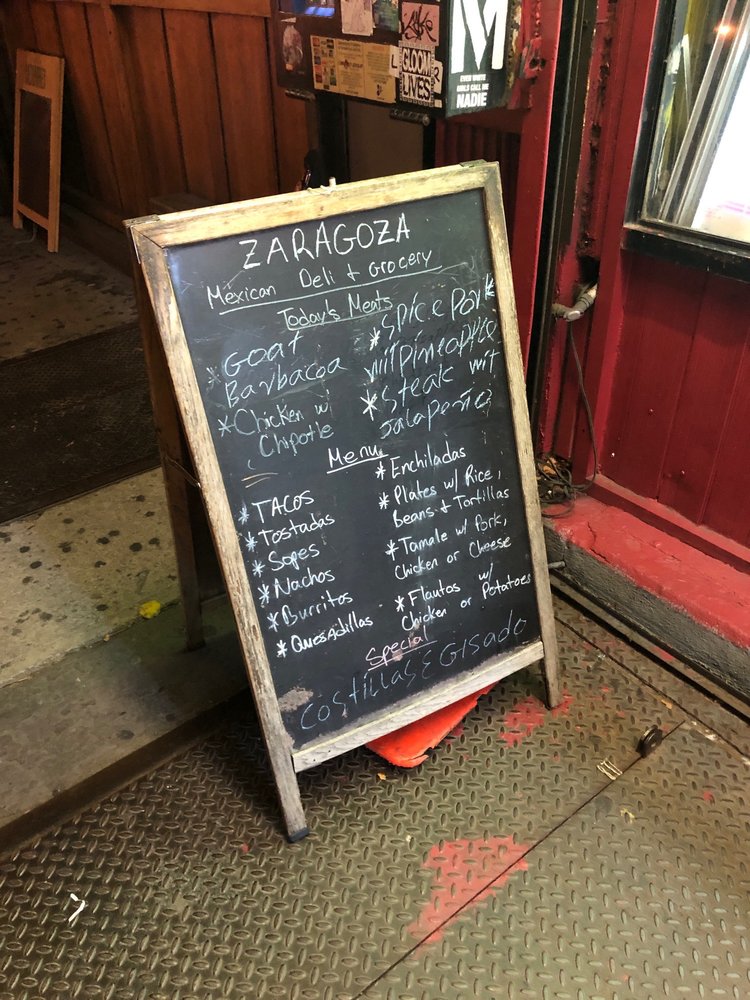 ZARAGOZA
Mexican Deli + Grocery
Today's Meats
* Goat
Barbacoa
* Chicken w/
Chipotle
* Spice Pork
wit pineapple
* Steak wit
Jalapeño
Menu
* TACOS
* Tostadas
* Sopes
* Nachos
* Burritos
* Quesadillas
* Enchiladas
* Plates w/ Rice,
beans + Tortillas
* Tamale w/ Pork,
Chicken or Cheese
* Flautos w/
Chicken or Potatoes
Special
Costillas E Gisado
GLOOM
LIVES
M
EVEN WHITE
GIRLS CALL ME
NADIE